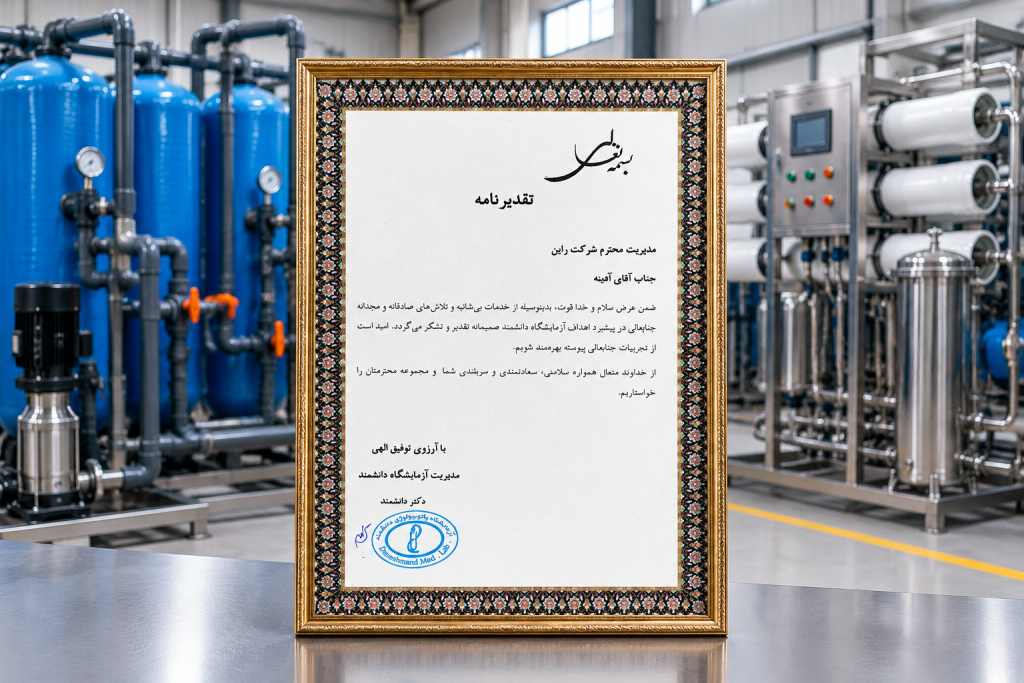 بسمه تعالی
تقدیرنامه
مدیریت محترم شرکت راین
جناب آقای آدینه
ضمن عرض سلام و خدا قوت، بدینوسیله از خدمات بی‌شائبه و تلاش‌های صادقانه و مجدانه
جنابعالی در پیشبرد اهداف آزمایشگاه دانشمند صمیمانه تقدیر و تشکر می‌گردد. امید است
از تجربیات جنابعالی پیوسته بهره‌مند شویم.
از خداوند متعال همواره سلامتی، سعادتمندی و سربلندی شما و مجموعه محترمتان را
خواستاریم.
با آرزوی توفیق الهی
مدیریت آزمایشگاه دانشمند
دکتر دانشمند
آزمایشگاه پاتوبیولوژی دانشمند
Daneshmand Med. Lab.